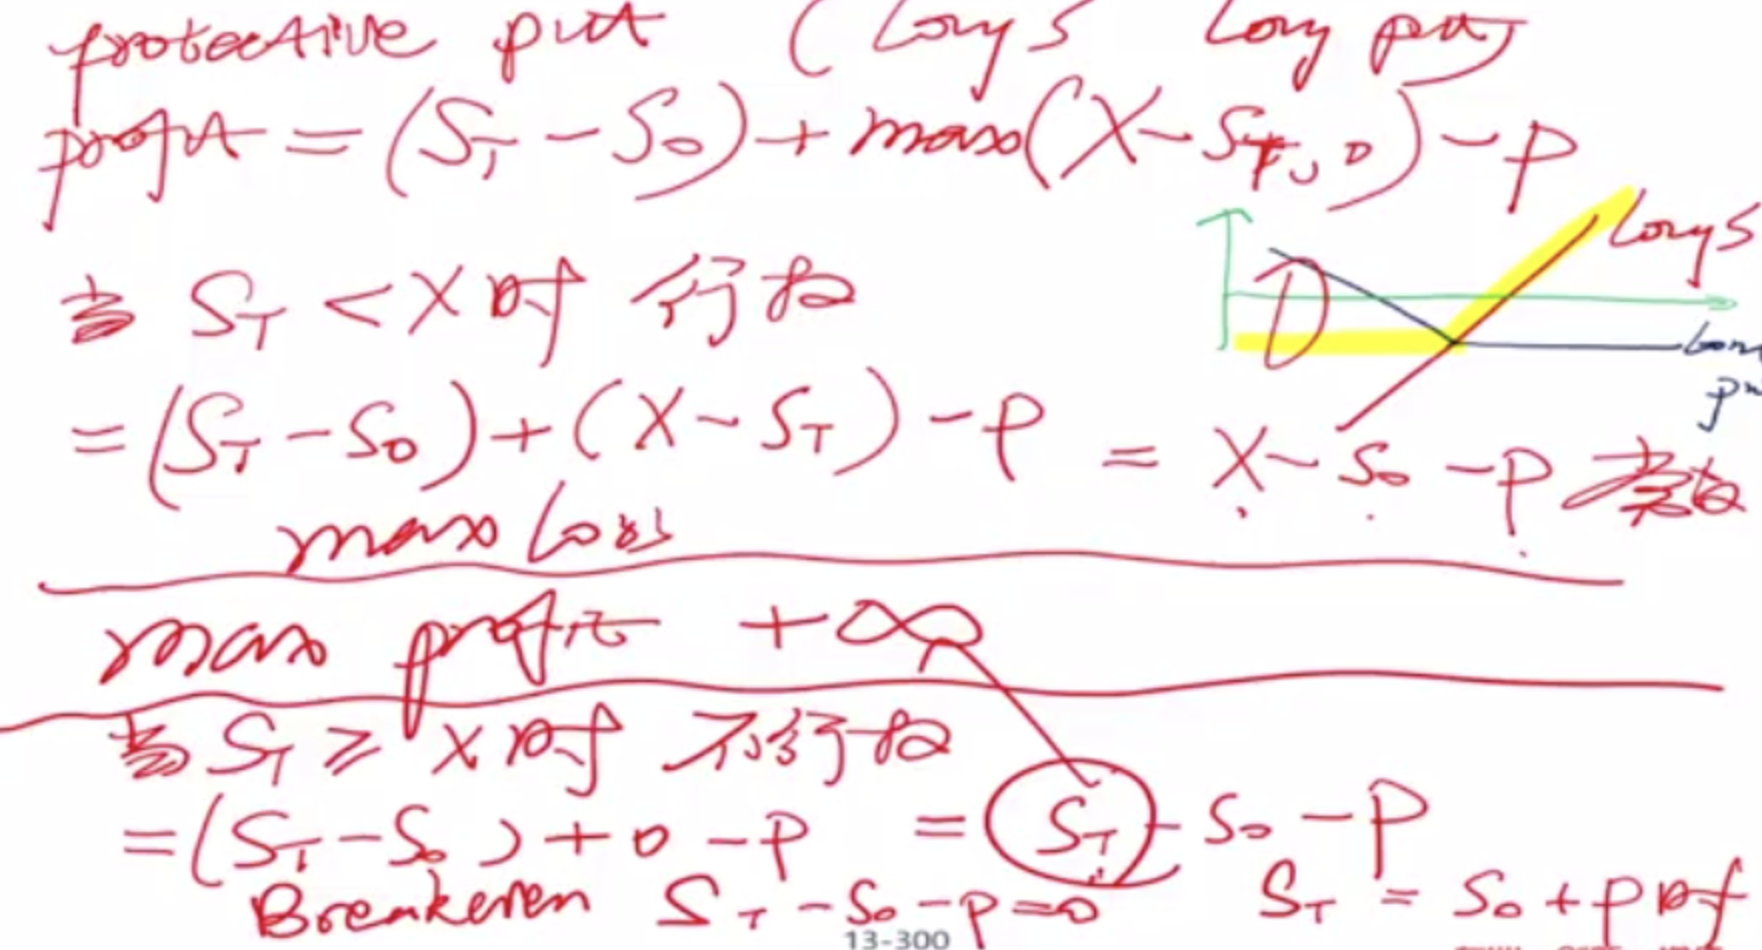 protective put (Long S Long put)
profit = (S_T - S_0) + max(X - S_T, 0) - P
Long S
当 S_T < X 时 行权
Long
= (S_T - S_0) + (X - S_T) - P = X - S_0 - P 常数
max loss
max profit +∞
当 S_T ≥ X 时 不行权
= (S_T - S_0) + 0 - P = S_T - S_0 - P
Breakeven S_T - S_0 - P = 0 S_T = S_0 + P 时
13-300